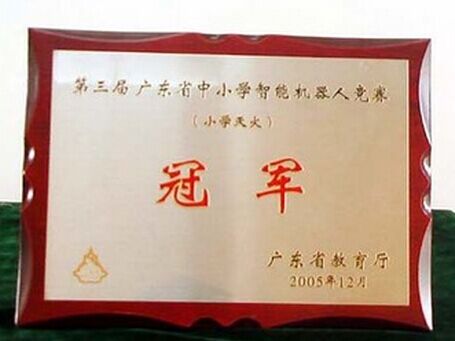 第三届广东省中小学智能机器人竞赛
（小学灭火）
冠军
广东省教育厅
2005年12月